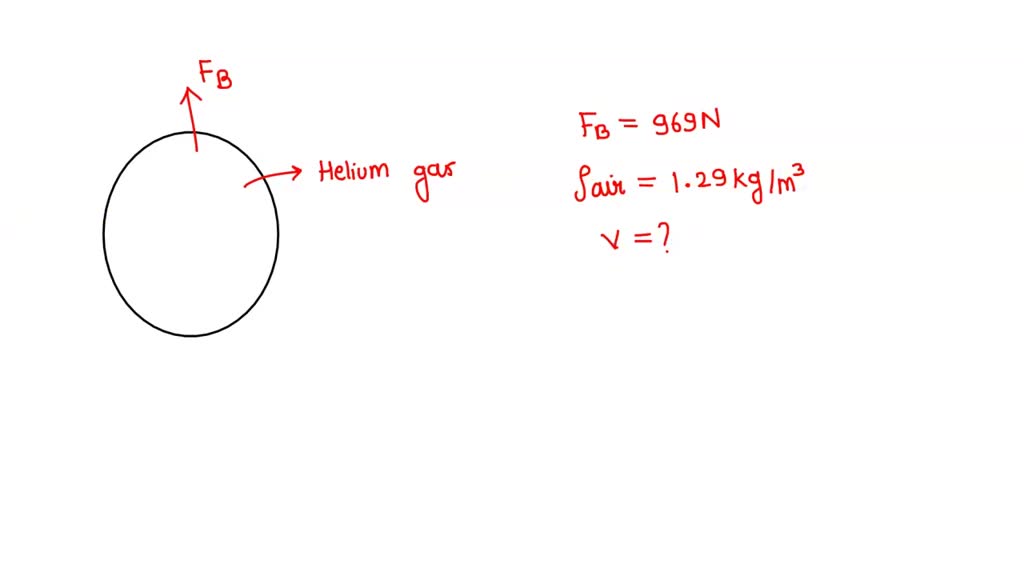 F_B
Helium gas
F_B = 969N
ρair = 1.29 kg/m³
v = ?